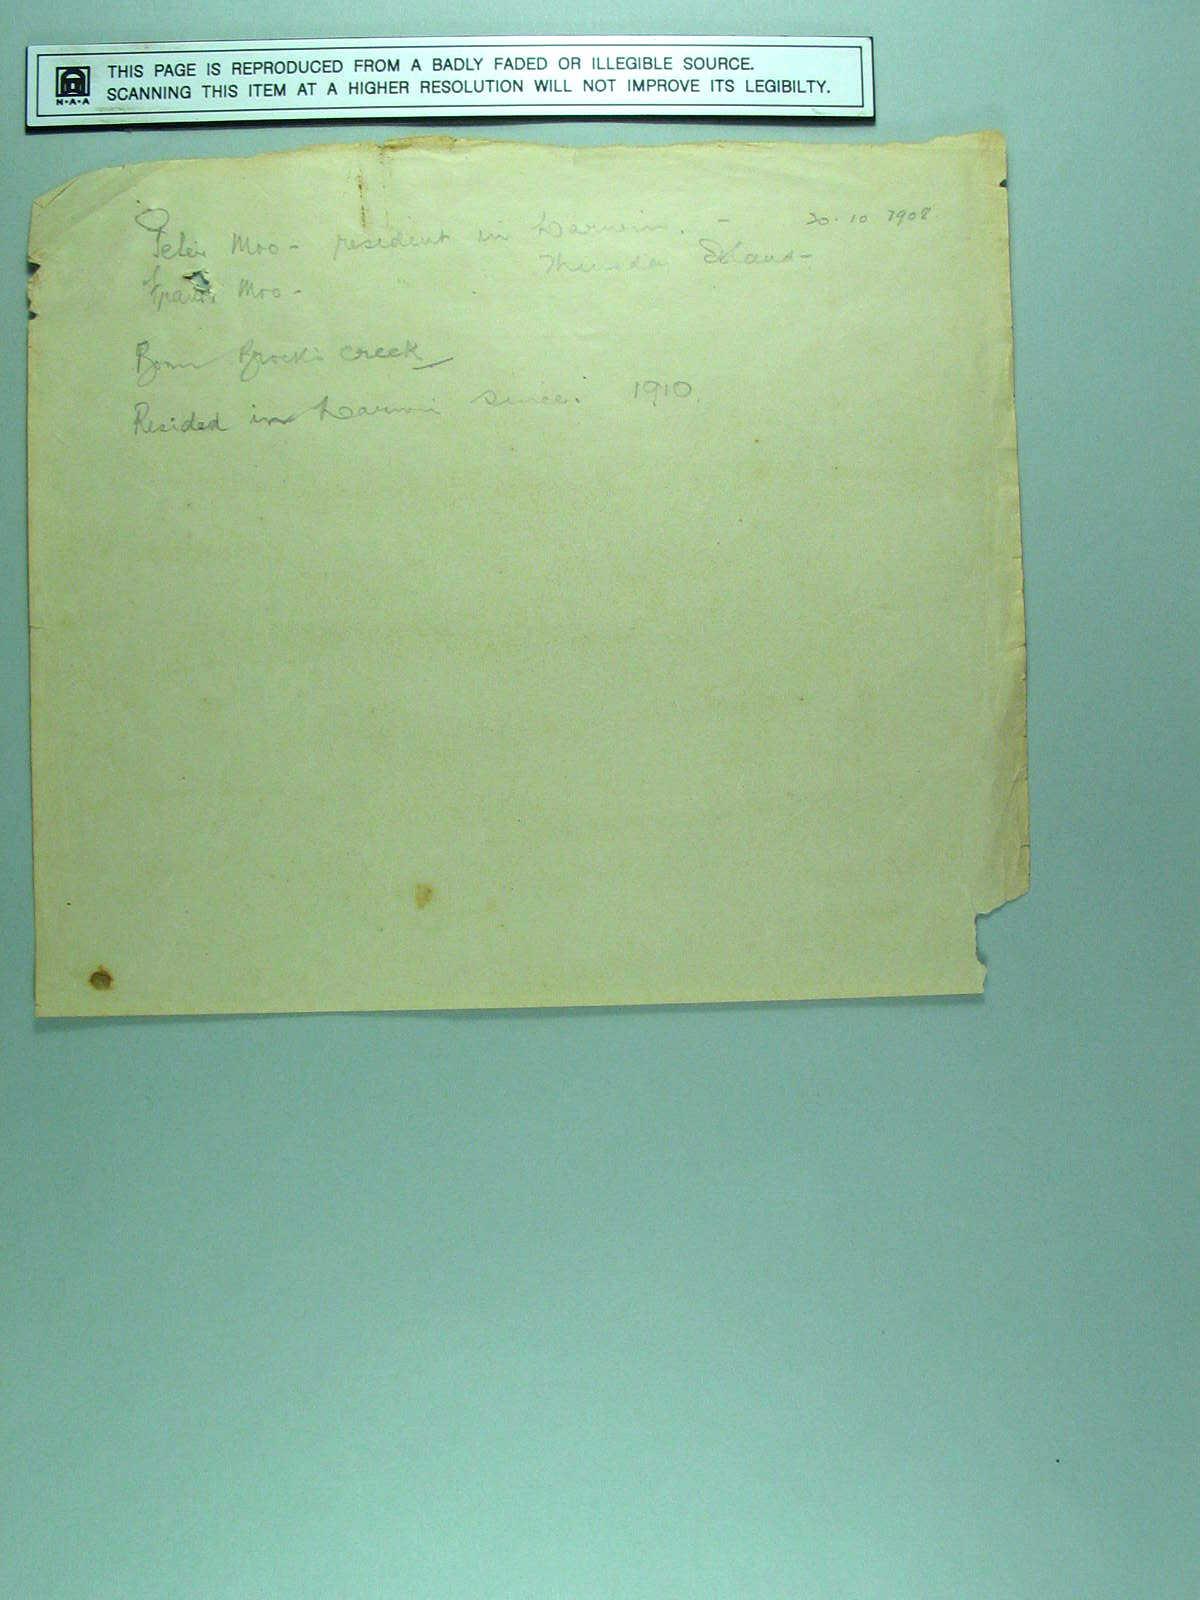 THIS PAGE IS REPRODUCED FROM A BADLY FADED OR ILLEGIBLE SOURCE.
SCANNING THIS ITEM AT A HIGHER RESOLUTION WILL NOT IMPROVE ITS LEGIBILTY.
N·A·A
Peter Moo - resident in Darwin. - 20.10 1908
Thursday Island -
Moo -
Born Brock's Creek
Resided in Darwin since. 1910.